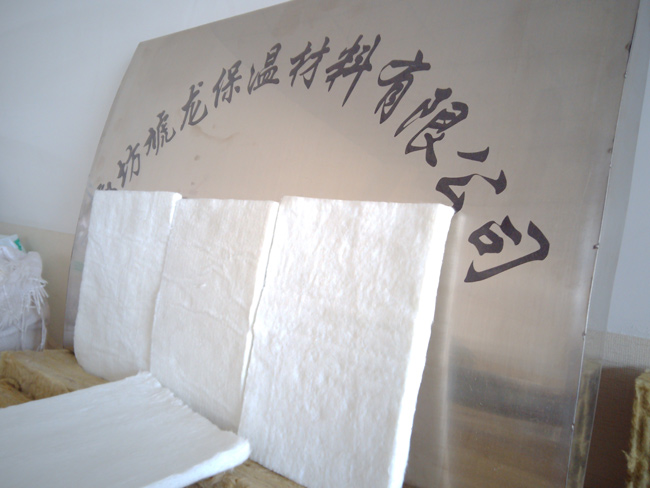 坊龙保温材料有限公司